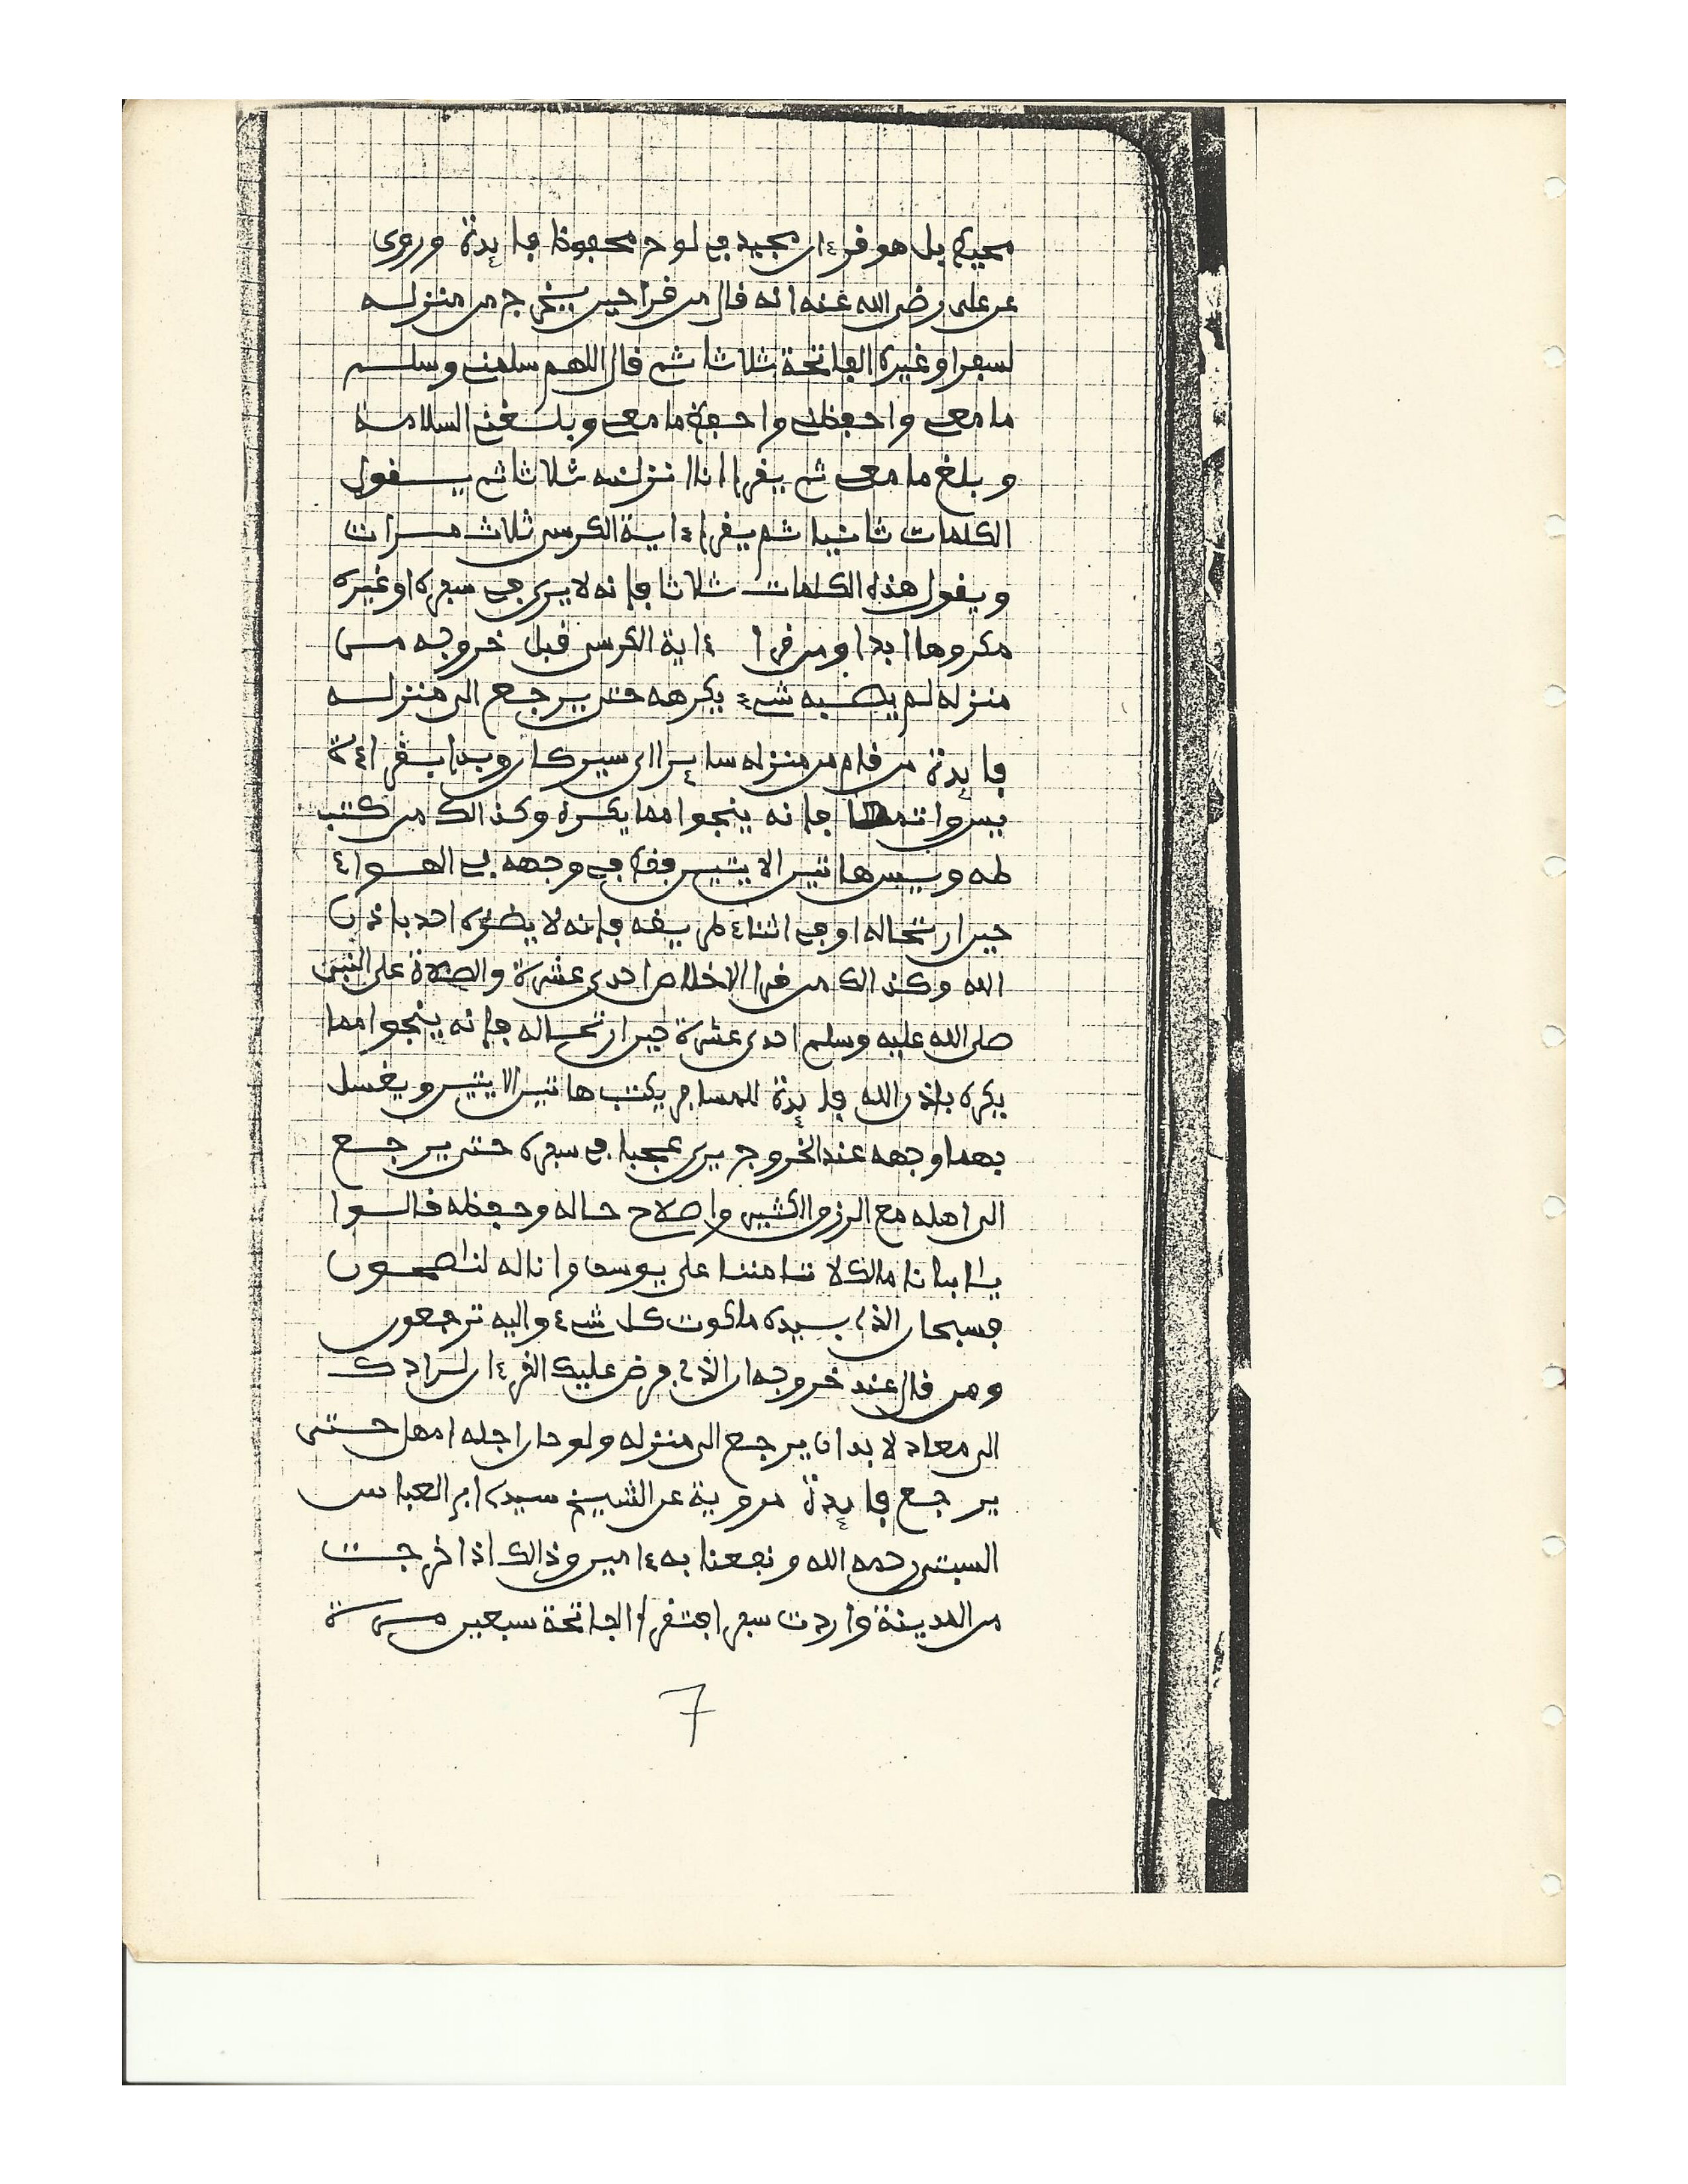 محيط بل هو فرءان مجيد في لوح محفوظ فايدة وروى
عن على رضى الله عنه انه فال من فرا حين يخرج من منزله
لسفر او غيره الفاتحة ثلاثا ثم فال اللهم سلمنى وسلم
ما معى واحفظنى واحفظ ما معى وبلغنى السلامة
وبلغ ما معى ثم يفرا انا انزلنه ثلاثا ثم يفول
الكلمات ثانيا ثم يفرا ءاية الكرسى ثلاث مرات
ويفول هذه الكلمات ثلاثا فانه لا يرى في سفره او غيره
مكروها ابدا ومن فرا ءاية الكرسى فبل خروجه من
منزله لم يصبه شىء يكرهه حتى يرجع الى منزله
فايدة من فام من منزله سايرا اى سير كان وبدا بفراءة
يس واتمها فانه ينجوا مما يكره وكذالك من كتب
طه ويس هاتين الايتين في وجهه في الهواء
حين ارتحاله او في اثناء طريفه فانه لا يضره احد باذن
الله وكذالك من فرا الاخلاص احدى عشرة والصلاة على النبى
صلى الله عليه وسلم احدى عشرة حين ارتحاله فانه ينجوا مما
يكره باذن الله فايدة للمسافر يكتب هاتين الايتين ويغسل
بهما وجهه عند الخروج يرى عجبا في سفره حتى يرجع
الى اهله مع الرزق الكثير واصلاح حاله وحفظه فالوا
يا ابانا مالك لا تامننا على يوسف وانا له لنصحون
فسبحان الذى بيده ملكوت كل شىء واليه ترجعون
ومن فال عند خروجه ان الذى فرض عليك الفرءان لرادك
الى معاد لا بد ان يرجع الى منزله ولو حان اجله امهل حتى
يرجع فايدة مروية عن الشيخ سيدى ابى العباس
السبتى رحمه الله ونفعنا به ءامين وذالك اذا خرجت
من المدينة واردت سفرا فتفرا الفاتحة سبعين مرة
7